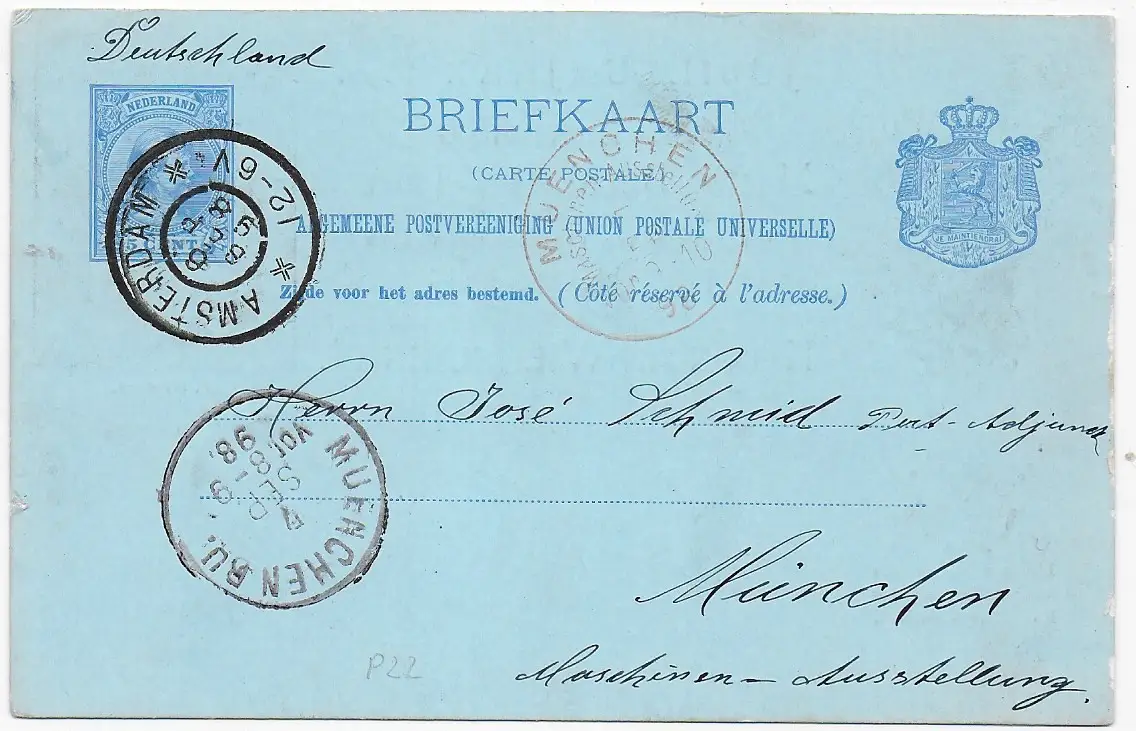 Deutschland
NEDERLAND
5 CENT
BRIEFKAART
(CARTE POSTALE)
ALGEMEENE POSTVEREENIGING (UNION POSTALE UNIVERSELLE)
Zijde voor het adres bestemd. (Côté réservé à l'adresse.)
JE MAINTIENDRAI
AMSTERDAM
12-6V
MUENCHEN
98
Herrn José Schmid Pert-Adjunct
MUENCHEN B.U.
7
SEP
8-9
Vor
98.
München
Maschinen-Ausstellung.
P22